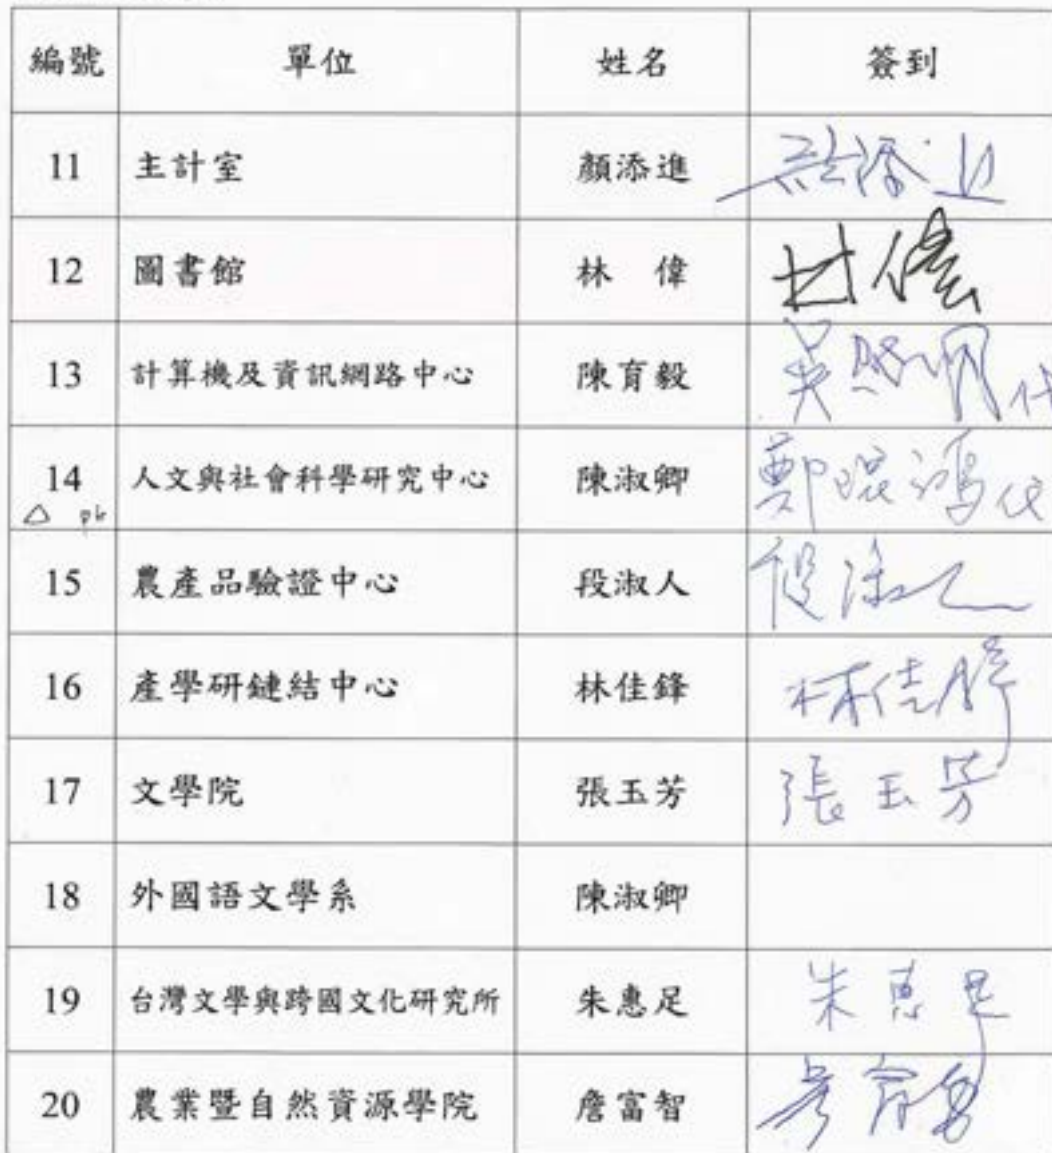 編號 單位 姓名 簽到
11 主計室 顏添進 顏添進
12 圖書館 林 偉 林偉
13 計算機及資訊網路中心 陳育毅 代
14 人文與社會科學研究中心 陳淑卿 鄭琨鴻代
△
15 農產品驗證中心 段淑人 段淑人
16 產學研鏈結中心 林佳鋒 林佳鋒
17 文學院 張玉芳 張玉芳
18 外國語文學系 陳淑卿
19 台灣文學與跨國文化研究所 朱惠足 朱惠足
20 農業暨自然資源學院 詹富智